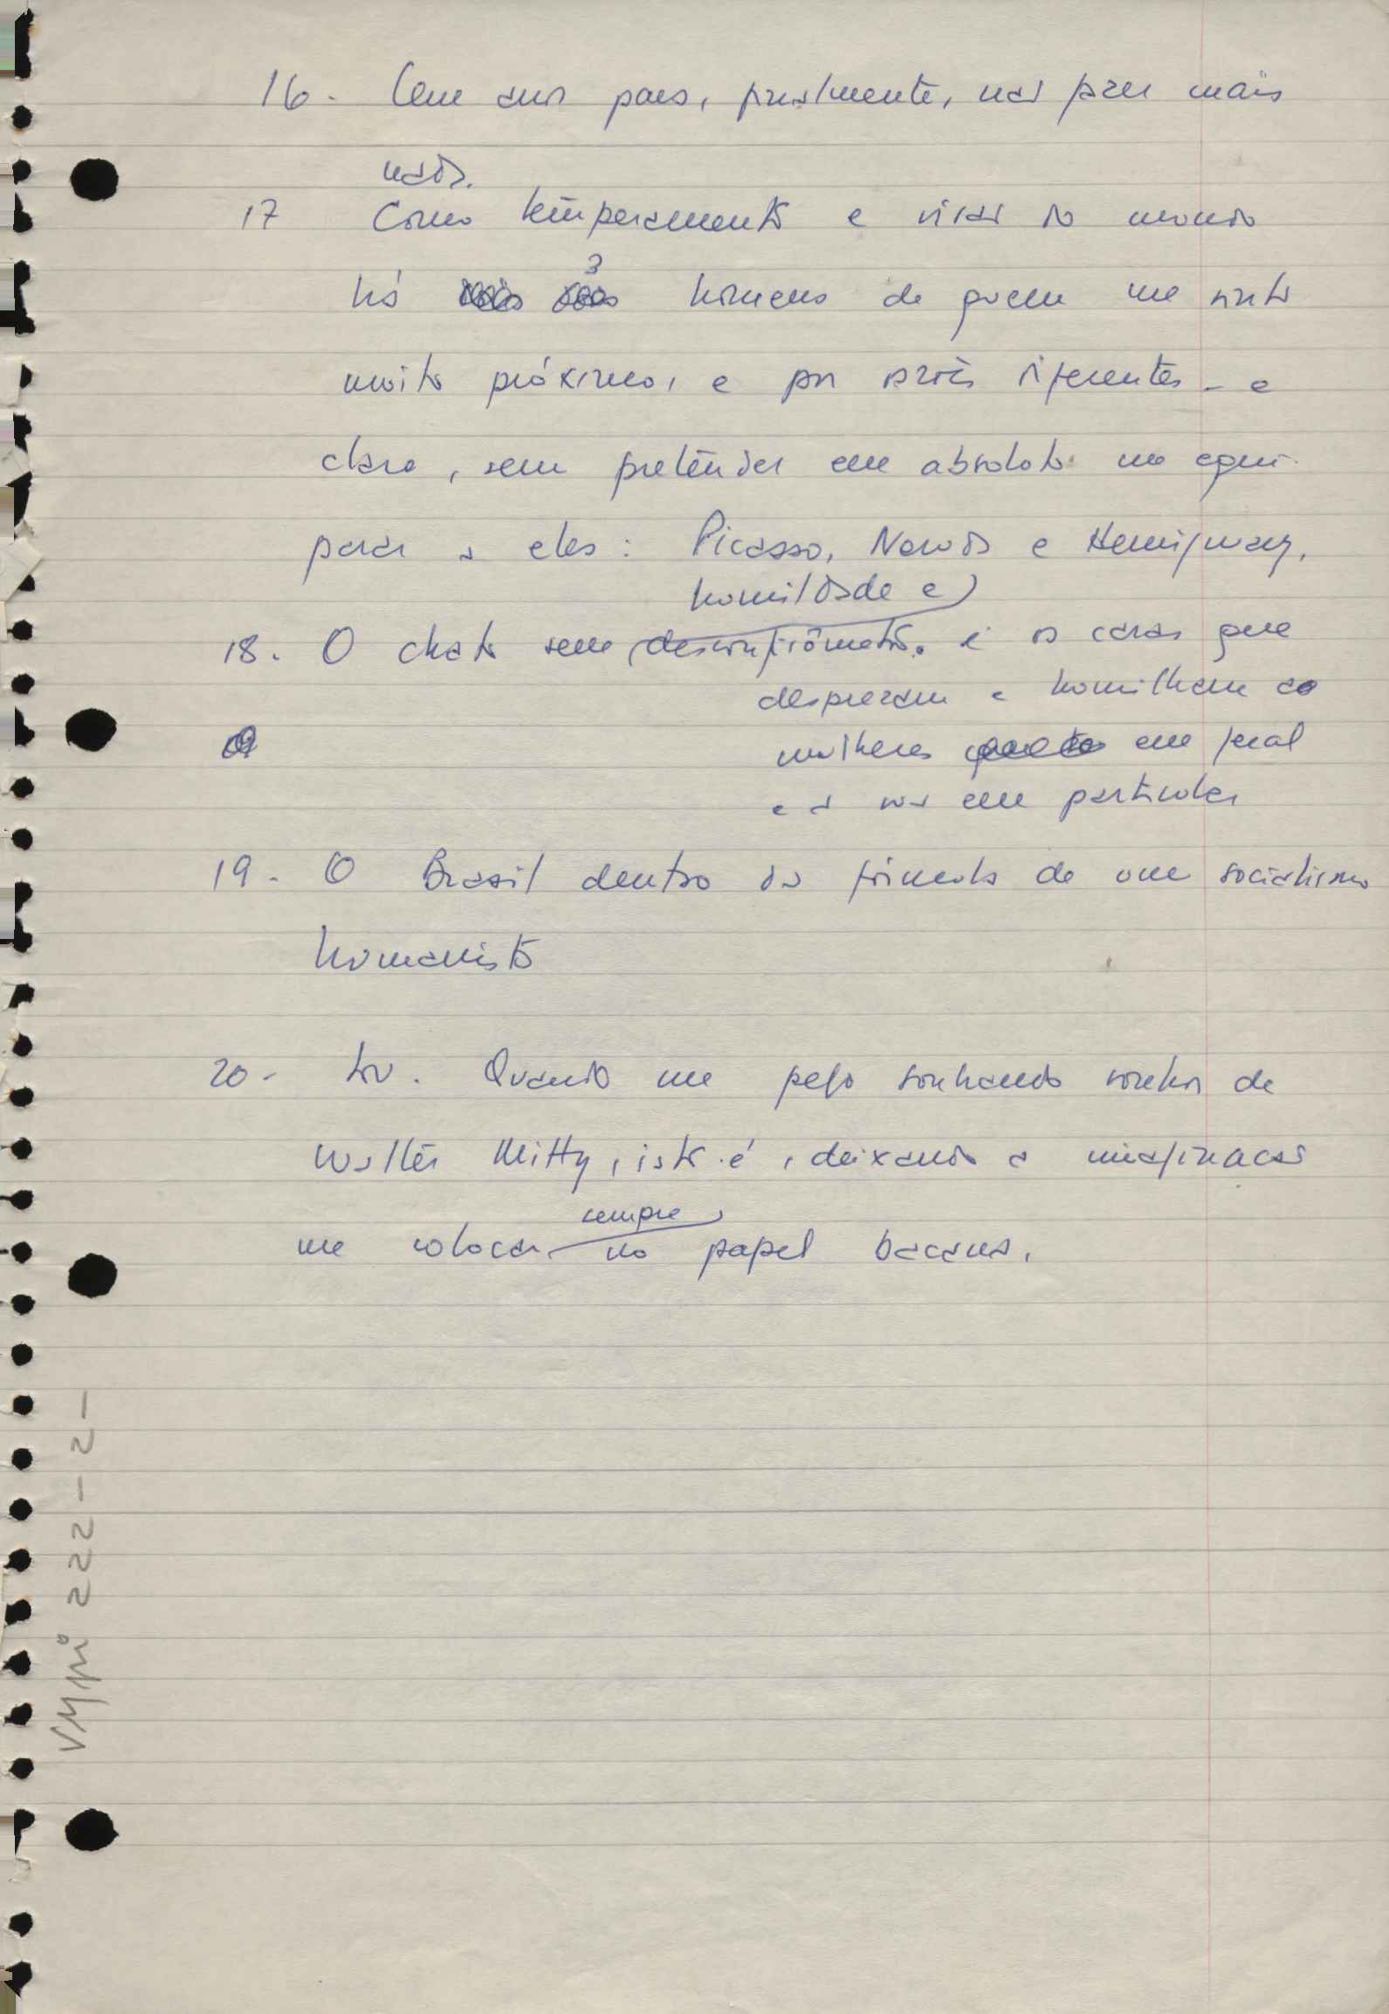 16 - Cem anos para, finalmente, não fazer mais
nada.
17 Como temperamento e visão do mundo
há 3 homens de quem me sinto
muito próximo, e por razões diferentes - e
claro, sem pretender em absoluto me equi-
parar a eles: Picasso, Neruda e Hemingway.
humildade e
18. O chato sem desconfiômetro. e os caras que
desprezam e humilham as
mulheres em geral
e a sua em particular
19 - O Brasil dentro da fórmula de um socialismo
humanista
20 - Sou. Quando me pego sonhando sonhos de
Walter Mitty, isto é, deixando a imaginação
sempre
me colocar no papel bacana.
VMpi 222-2-